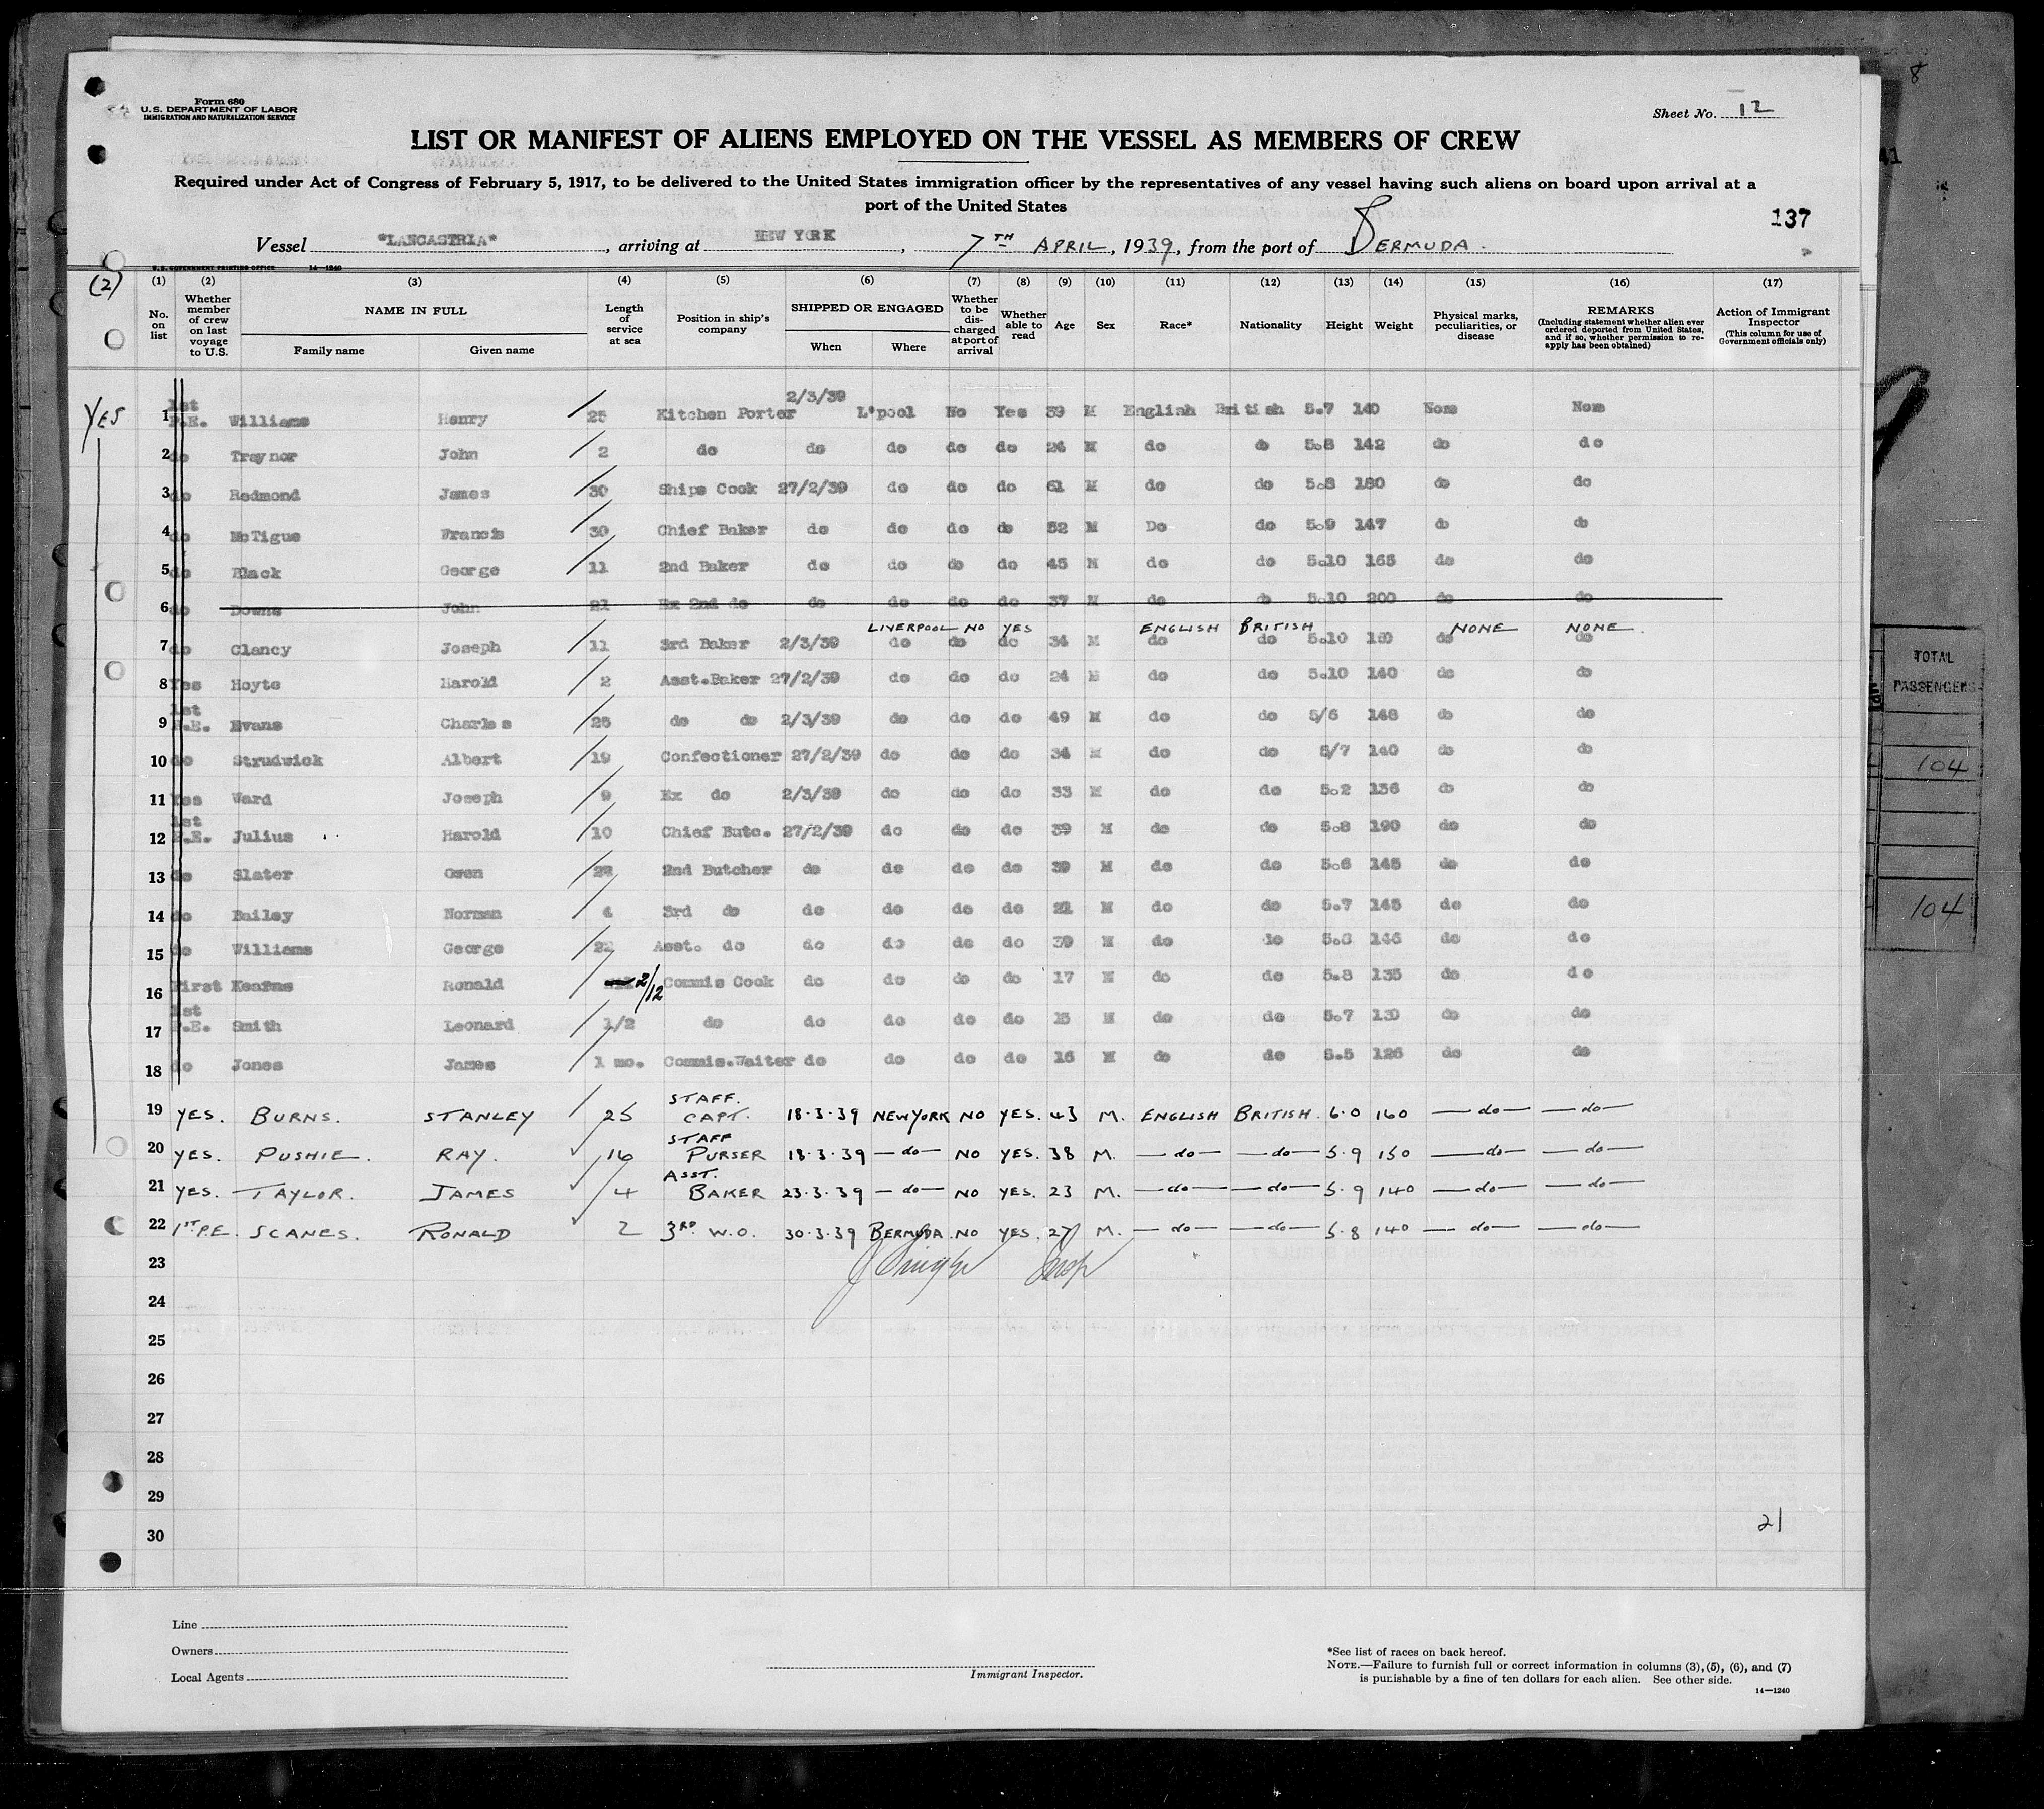 8
Form 680
U.S. DEPARTMENT OF LABOR
IMMIGRATION AND NATURALIZATION SERVICE
Sheet No. 12
LIST OR MANIFEST OF ALIENS EMPLOYED ON THE VESSEL AS MEMBERS OF CREW
Required under Act of Congress of February 5, 1917, to be delivered to the United States immigration officer by the representatives of any vessel having such aliens on board upon arrival at a
port of the United States
137
Vessel "LANCASTRIA", arriving at NEW YORK, 7TH APRIL, 1939, from the port of BERMUDA.
U.S. GOVERNMENT PRINTING OFFICE 14—1240
(2)
(1) (2) (3) (4) (5) (6) (7) (8) (9) (10) (11) (12) (13) (14) (15) (16) (17)
No. on list
Whether member of crew on last voyage to U.S.
NAME IN FULL
Family name Given name
Length of service at sea
Position in ship's company
SHIPPED OR ENGAGED
When Where
Whether to be discharged at port of arrival
Whether able to read
Age
Sex
Race*
Nationality
Height
Weight
Physical marks, peculiarities, or disease
REMARKS
(Including statement whether alien ever ordered deported from United States, and if so, whether permission to reapply has been obtained)
Action of Immigrant Inspector
(This column for use of Government officials only)
YES
1 1st P.E. Williams Henry 25 Kitchen Porter 2/3/39 L'pool No Yes 39 M English British 5.7 140 None None
2 do Traynor John 2 do do do do do 24 M do do 5.8 142 do do
3 do Redmond James 30 Ships Cook 27/2/39 do do do 61 M do do 5.8 180 do do
4 do McTigue Francis 30 Chief Baker do do do do 52 M Do do 5.9 147 do do
5 do Black George 11 2nd Baker do do do do 45 M do do 5.10 165 do do
6 do Downs John 21 Ex 2nd do do do do do 37 M do do 5.10 200 do do
LIVERPOOL NO YES ENGLISH BRITISH NONE NONE
7 do Clancy Joseph 11 3rd Baker 2/3/39 do do do 34 M do do 5.10 150 do do
8 Yes Hoyte Harold 2 Asst.Baker 27/2/39 do do do 24 M do do 5.10 140 do do
9 1st P.E. Evans Charles 25 do do 2/3/39 do do do 49 M do do 5/6 148 do do
10 do Strudwick Albert 19 Confectioner 27/2/39 do do do 34 M do do 5/7 140 do do
11 Yes Ward Joseph 9 Ex do 2/3/39 do do do 33 M do do 5.2 136 do do
12 1st P.E. Julius Harold 10 Chief Butc. 27/2/39 do do do 39 M do do 5.8 190 do do
13 do Slater Owen 22 2nd Butcher do do do do 39 M do do 5.6 145 do do
14 do Bailey Norman 4 3rd do do do do do 21 M do do 5.7 145 do do
15 do Williams George 22 Asst. do do do do do 39 M do do 5.8 146 do do
16 First Kearns Ronald 2/12 Commis Cook do do do do 17 M do do 5.8 135 do do
17 1st P.E. Smith Leonard 1/2 do do do do do 15 M do do 5.7 130 do do
18 do Jones James 1 mo. Commis.Waiter do do do do 16 M do do 5.5 126 do do
19 YES. BURNS. STANLEY 25 STAFF. CAPT. 18.3.39 NEW YORK NO YES. 43 M. ENGLISH BRITISH. 6.0 160 —do— —do—
20 YES. PUSHIE. RAY. 16 STAFF PURSER 18.3.39 —do— NO YES. 38 M. —do— —do— 5.9 150 —do— —do—
21 YES. TAYLOR. JAMES 4 ASST. BAKER 23.3.39 —do— NO YES. 23 M. —do— —do— 5.9 140 —do— —do—
22 1ST P.E. SCANES. RONALD 2 3RD W.O. 30.3.39 BERMUDA. NO YES. 27 M. —do— —do— 5.8 140 —do— —do—
23
24
25
26
27
28
29
30
21
TOTAL
PASSENGERS
104
104
Line
Owners
Local Agents
Immigrant Inspector.
*See list of races on back hereof.
NOTE.—Failure to furnish full or correct information in columns (3), (5), (6), and (7)
is punishable by a fine of ten dollars for each alien. See other side.
14—1240